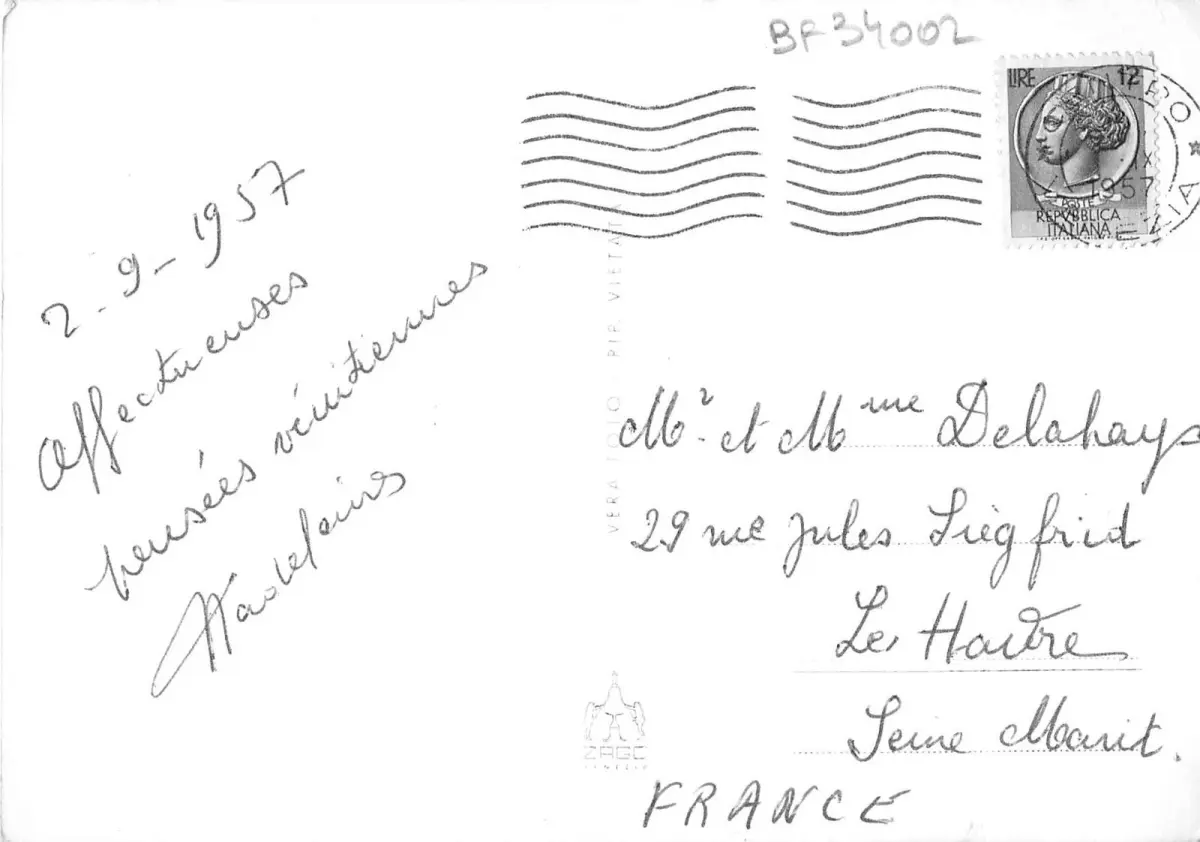 BF34002
LIRE 12
POSTE
REPVBBLICA
ITALIANA
1957
2-9-1957
Affectueuses
pensées vénitiennes
Madeleine
VERA FOTO - RIP. VIETATA
Mr. et Mme Delahaye
29 rue Jules Siègfrid
Le Havre
Seine Marit.
FRANCE